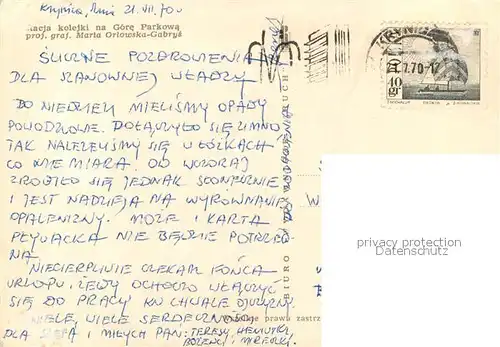 Krynica, dnia 21. VII. 70 r.
acja kolejki na Górę Parkową
prof. graf. Maria Orłowska-Gabryś
ŚLICZNE POZDROWIENIA
DLA SZANOWNEJ WŁADZY
DO NIEDZIELI MIELIŚMY OPADY
POWODZIOWE. DOŁĄCZYŁO SIĘ ZIMNO
TAK NALEŻELIŚMY SIĘ W ŁÓŻKACH
CO NIE MIARA. OD WCZORAJ
ZROBIŁO SIĘ JEDNAK SŁONECZNIE
I JEST NADZIEJA NA WYRÓWNANIE
OPALENIZNY. MOŻE I KARTA
PŁYWACKA NIE BĘDZIE POTRZEB-
NA.
NIECIERPLIWIE CZEKAM KOŃCA
URLOPU, ŻEBY OCHOCZO WŁĄCZYĆ
SIĘ DO PRACY KU CHWALE OJCZYZNY.
WIELE, WIELE SERDECZNOŚCI
DLA SZEFA I MIŁYCH PAŃ: TERESY, HENRYKI,
BOŻENCI I MIRECZKI.
BIURO
RUCH
prawa zastrz
KRYNICA
21.7.70-17
40 gr
privacy protection
Datenschutz